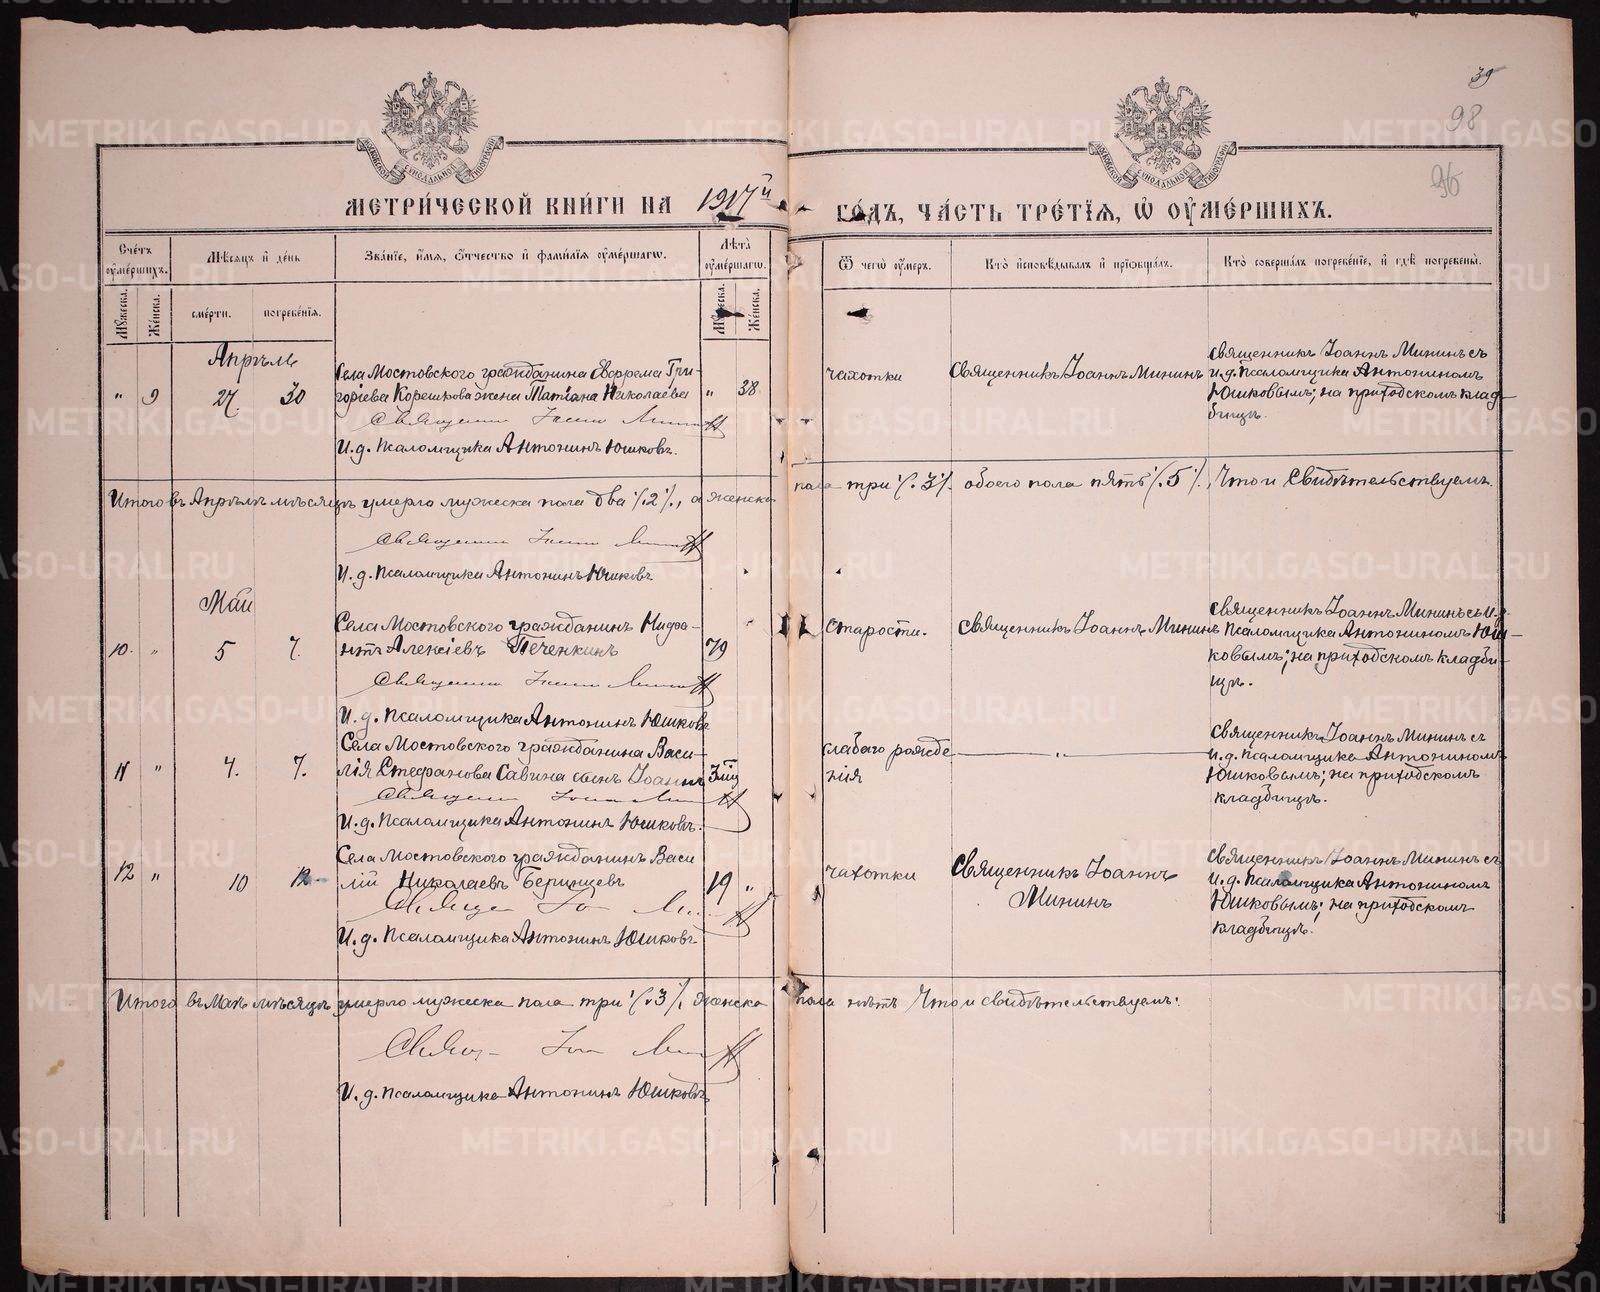 39
98
96
МЕТРИ́ЧЕСКОЙ КНИ́ГИ НА 1917й
ГО́ДЪ, ЧА́СТЬ ТРЕ́ТІѦ, Ѡ ОУМЕ́РШИХЪ.
Сче́тъ оуме́ршихъ.
Мѣ́сѧцъ и де́нь
Зва́нїе, и́мѧ, ѻ́тчество и фами́лїѧ оуме́ршагѡ.
Лѣ́та оуме́ршагѡ.
Ѿ чегѡ̀ оу́меръ.
Кто̀ и҆сповѣ́дывалъ и҆ прїѡбща́лъ.
Кто̀ соверша́лъ погребе́нїе, и҆ гдѣ̀ погребены̀.
Мꙋ́жеска.
Же́нска.
сме́рти.
погребе́нїѧ.
Мꙋ́жеска.
Же́нска.
Апрѣль
" 9 27 30
Села Мостовского гражданина Евфрема Гри-
горіева Корешкова жена Татіана Николаева
" 38
Священникъ Іоаннъ Мининъ
И. д. Псаломщика Антонинъ Юшковъ.
чахотки
Священникъ Іоаннъ Мининъ
Священникъ Іоаннъ Мининъ съ
и.д. Псаломщика Антониномъ
Юшковымъ; на приходскомъ клад-
бищѣ.
Итого въ Апрѣлѣ мѣсяцѣ умерло мужеска пола два /.2./, а женска
пола три /.3./. обоего пола пять /.5./. Что и Свидѣтельствуемъ.
Священникъ Іоаннъ Мининъ
И. д. Псаломщика Антонинъ Юшковъ
Май
10. " 5 7.
Села Мостовского гражданинъ Нифа-
нтъ Алексіевъ Печенкинъ
79
Священникъ Іоаннъ Мининъ
И. д. Псаломщика Антонинъ Юшковъ
Старости.
Священникъ Іоаннъ Мининъ
Священникъ Іоаннъ Мининъ съ и.д.
Псаломщика Антониномъ Юш-
ковымъ; на приходскомъ кладби-
щѣ.
11 " 4. 7.
Села Мостовского гражданина Васи-
лія Стефанова Савина сынъ Іоаннъ
3 мц
Священникъ Іоаннъ Мининъ
И. д. Псаломщика Антонинъ Юшковъ.
слабаго рожде-
нія
"
Священникъ Іоаннъ Мининъ съ
и.д. Псаломщика Антониномъ
Юшковымъ; на приходскомъ
кладбищѣ.
12 " 10 12
Села Мостовского гражданинъ Васи
лій Николаевъ Беринцевъ
19 "
Священникъ Іоаннъ Мининъ
И. д. Псаломщика Антонинъ Юшковъ
чахотки
Священникъ Іоаннъ
Мининъ
Священникъ Іоаннъ Мининъ съ
и.д. Псаломщика Антониномъ
Юшковымъ; на приходскомъ
кладбищѣ.
Итого въ Маѣ мѣсяцѣ умерло мужеска пола три /.3./, женска
пола нѣтъ Что и свидѣтельствуемъ:
Свящ- Іоа Мин
И. д. Псаломщика Антонинъ Юшковъ
METRIKI.GASO-URAL.RU